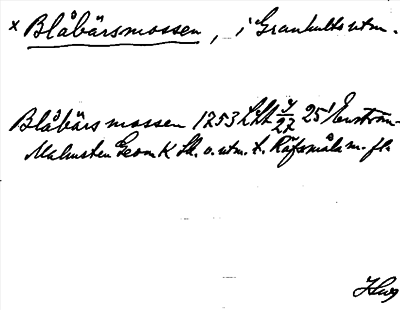 x Blåbärsmossen, i Granhults utm.
Blåbärsmossen 1253 Lill 25 Enström-
Malmsten Geom K Sk. o. utm. t. Råfsmåla m. fl.